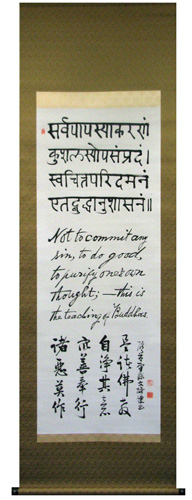 सर्वपापस्याकरणं
कुशलस्योपसंप्रदं।
स्वचित्तपरिदमनं
एतद्बुद्धानुशासनं॥
Not to commit any
sin, to do good,
to purify one's own
thought; — this is
the teaching of Buddhas.
諸悪莫作
衆善奉行
自浄其意
是諸佛教